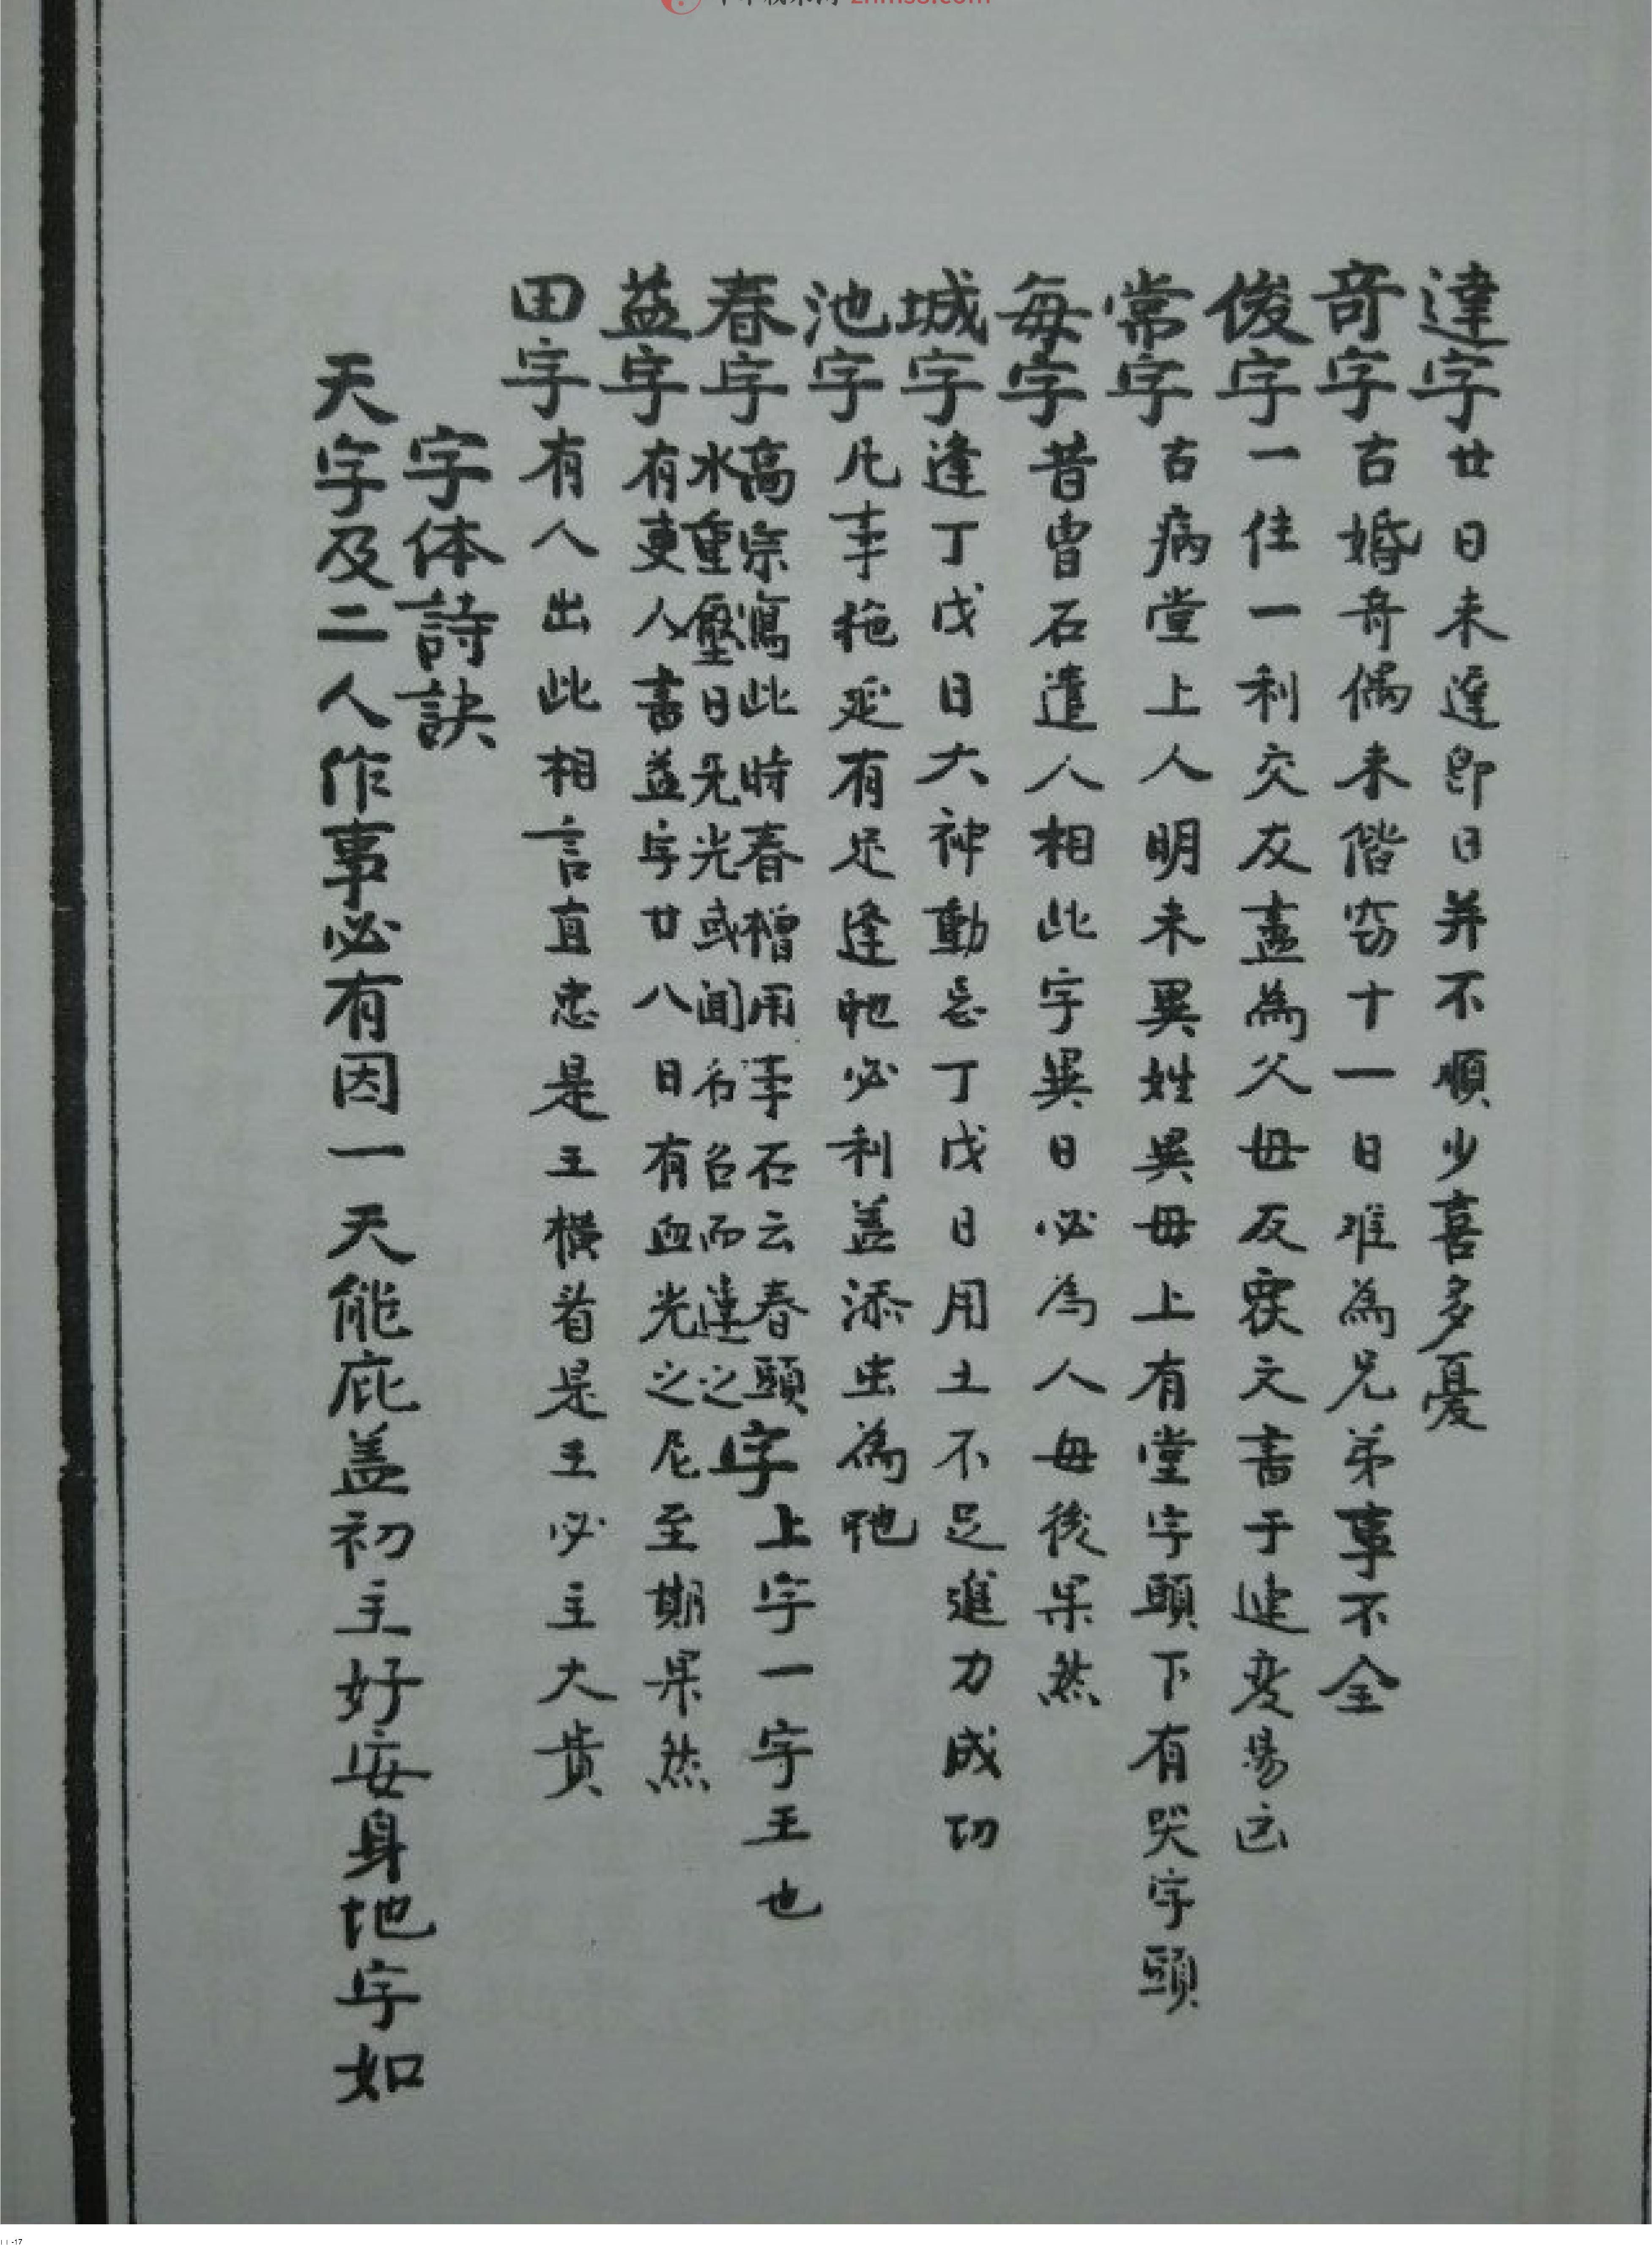 達字廿日未達即日并不順少喜多憂
奇字古婚奇偶未偕窃十一日难為兄弟事不全
俊字一住一利交友盡為父母反寂文書于建变易迄
常字古病堂上人明未異姓異母上有堂字頭下有哭字頭
每字昔曾石遣人相此字異日必為人母後果然
城字逢丁戊日大神動忌丁戊日用土不足進力成切
池字凡事拖延有足逢牠必利盖添虫為牠
春字高宗寫此時春檜用事石云春頭字上字一字王也
水重壓日无光或聞名召而連之
益字有吏人書益字廿八日有血光之厄至期果然
田字有人出此相言直忠是王横首是王必主大贵
字体詩訣
天字及二人作事必有因一天能庇盖初主好安身地字如
znms8.com